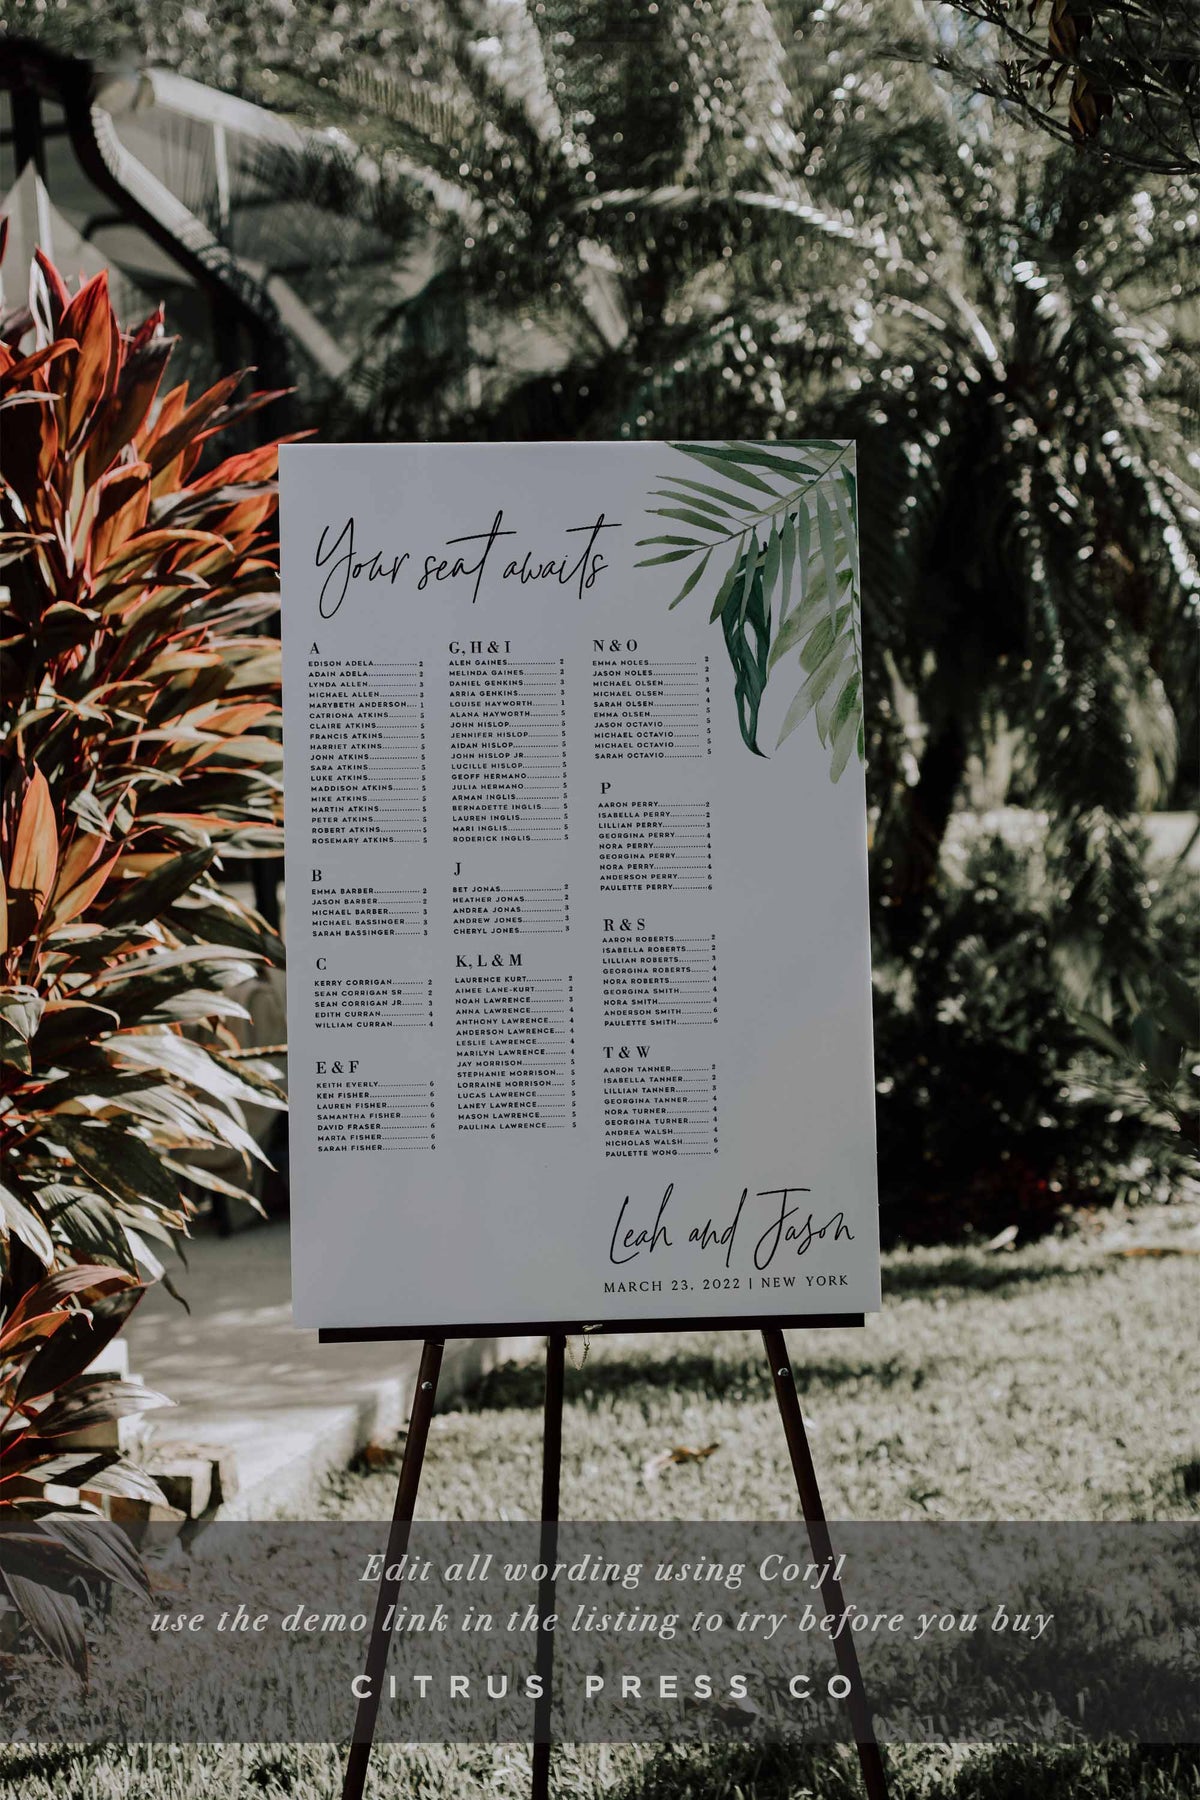 Your seat awaits
A
EDISON ADELA 2
ADAIN ADELA 2
LYNDA ALLEN 3
MICHAEL ALLEN 3
MARYBETH ANDERSON 1
CATRIONA ATKINS 5
CLAIRE ATKINS 5
FRANCIS ATKINS 5
HARRIET ATKINS 5
JONN ATKINS 5
SARA ATKINS 5
LUKE ATKINS 5
MADDISON ATKINS 5
MIKE ATKINS 5
MARTIN ATKINS 5
PETER ATKINS 5
ROBERT ATKINS 5
ROSEMARY ATKINS 5
B
EMMA BARBER 2
JASON BARBER 2
MICHAEL BARBER 3
MICHAEL BASSINGER 3
SARAH BASSINGER 3
C
KERRY CORRIGAN 2
SEAN CORRIGAN SR 2
SEAN CORRIGAN JR 3
EDITH CURRAN 4
WILLIAM CURRAN 4
E & F
KEITH EVERLY 6
KEN FISHER 6
LAUREN FISHER 6
SAMANTHA FISHER 6
DAVID FRASER 6
MARTA FISHER 6
SARAH FISHER 6
G, H & I
ALEN GAINES 2
MELINDA GAINES 2
DANIEL GENKINS 3
ARRIA GENKINS 3
LOUISE HAYWORTH 1
ALANA HAYWORTH 5
JOHN HISLOP 5
JENNIFER HISLOP 5
AIDAN HISLOP 5
JOHN HISLOP JR 5
LUCILLE HISLOP 5
GEOFF HERMANO 5
JULIA HERMANO 5
ARMAN INGLIS 5
BERNADETTE INGLIS 5
LAUREN INGLIS 5
MARI INGLIS 5
RODERICK INGLIS 5
J
BET JONAS 2
HEATHER JONAS 2
ANDREA JONAS 3
ANDREW JONES 3
CHERYL JONES 3
K, L & M
LAURENCE KURT 2
AIMEE LANE-KURT 2
NOAH LAWRENCE 3
ANNA LAWRENCE 4
ANTHONY LAWRENCE 4
ANDERSON LAWRENCE 4
LESLIE LAWRENCE 4
MARILYN LAWRENCE 4
JAY MORRISON 5
STEPHANIE MORRISON 5
LORRAINE MORRISON 5
LUCAS LAWRENCE 5
LANEY LAWRENCE 5
MASON LAWRENCE 5
PAULINA LAWRENCE 5
N & O
EMMA NOLES 2
JASON NOLES 2
MICHAEL OLSEN 3
MICHAEL OLSEN 4
SARAH OLSEN 4
EMMA OLSEN 5
JASON OCTAVIO 5
MICHAEL OCTAVIO 5
MICHAEL OCTAVIO 5
SARAH OCTAVIO 5
P
AARON PERRY 2
ISABELLA PERRY 2
LILLIAN PERRY 3
GEORGINA PERRY 4
NORA PERRY 4
GEORGINA PERRY 4
NORA PERRY 4
ANDERSON PERRY 6
PAULETTE PERRY 6
R & S
AARON ROBERTS 2
ISABELLA ROBERTS 2
LILLIAN ROBERTS 3
GEORGINA ROBERTS 4
NORA ROBERTS 4
GEORGINA SMITH 4
NORA SMITH 4
ANDERSON SMITH 6
PAULETTE SMITH 6
T & W
AARON TANNER 2
ISABELLA TANNER 2
LILLIAN TANNER 3
GEORGINA TANNER 4
NORA TURNER 4
GEORGINA TURNER 4
ANDREA WALSH 4
NICHOLAS WALSH 6
PAULETTE WONG 6
Leah and Jason
MARCH 23, 2022 | NEW YORK
Edit all wording using Corjl
use the demo link in the listing to try before you buy
CITRUS PRESS CO